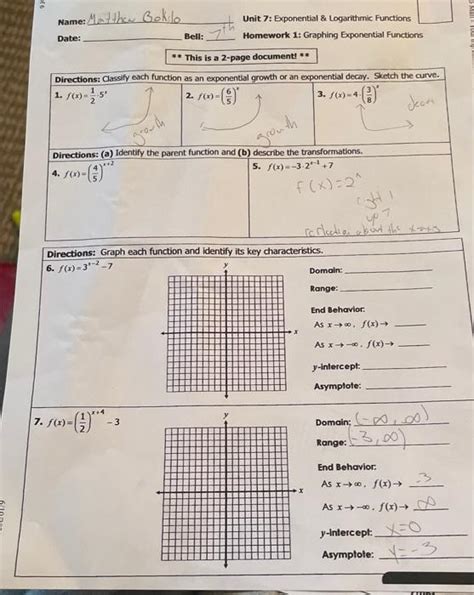 Name: Matthew Bokilo
Unit 7: Exponential & Logarithmic Functions
Date: Bell: 7th
Homework 1: Graphing Exponential Functions
** This is a 2-page document! **
Directions: Classify each function as an exponential growth or an exponential decay. Sketch the curve.
1. f(x)=1/2·5^x
2. f(x)=(6/5)^x
3. f(x)=4·(3/8)^x
growth
growth
decay
Directions: (a) Identify the parent function and (b) describe the transformations.
4. f(x)=(4/5)^(x+2)
5. f(x)=-3·2^(x-1)+7
f(x)=2^x
right 1
up 7
reflection about the x-axis
Directions: Graph each function and identify its key characteristics.
6. f(x)=3^(x-2)-7
y
x
Domain:
Range:
End Behavior:
As x→∞, f(x)→
As x→-∞, f(x)→
y-intercept:
Asymptote:
7. f(x)=(1/2)^(x+4)-3
y
x
Domain: (-∞, ∞)
Range: (-3, ∞)
End Behavior:
As x→∞, f(x)→ -3
As x→-∞, f(x)→ ∞
y-intercept: x=0
Asymptote: y=-3